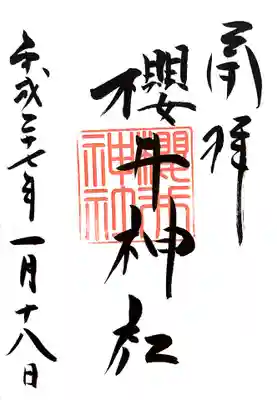 奉拝
櫻井神社
平成二十七年一月十八日
櫻井神社